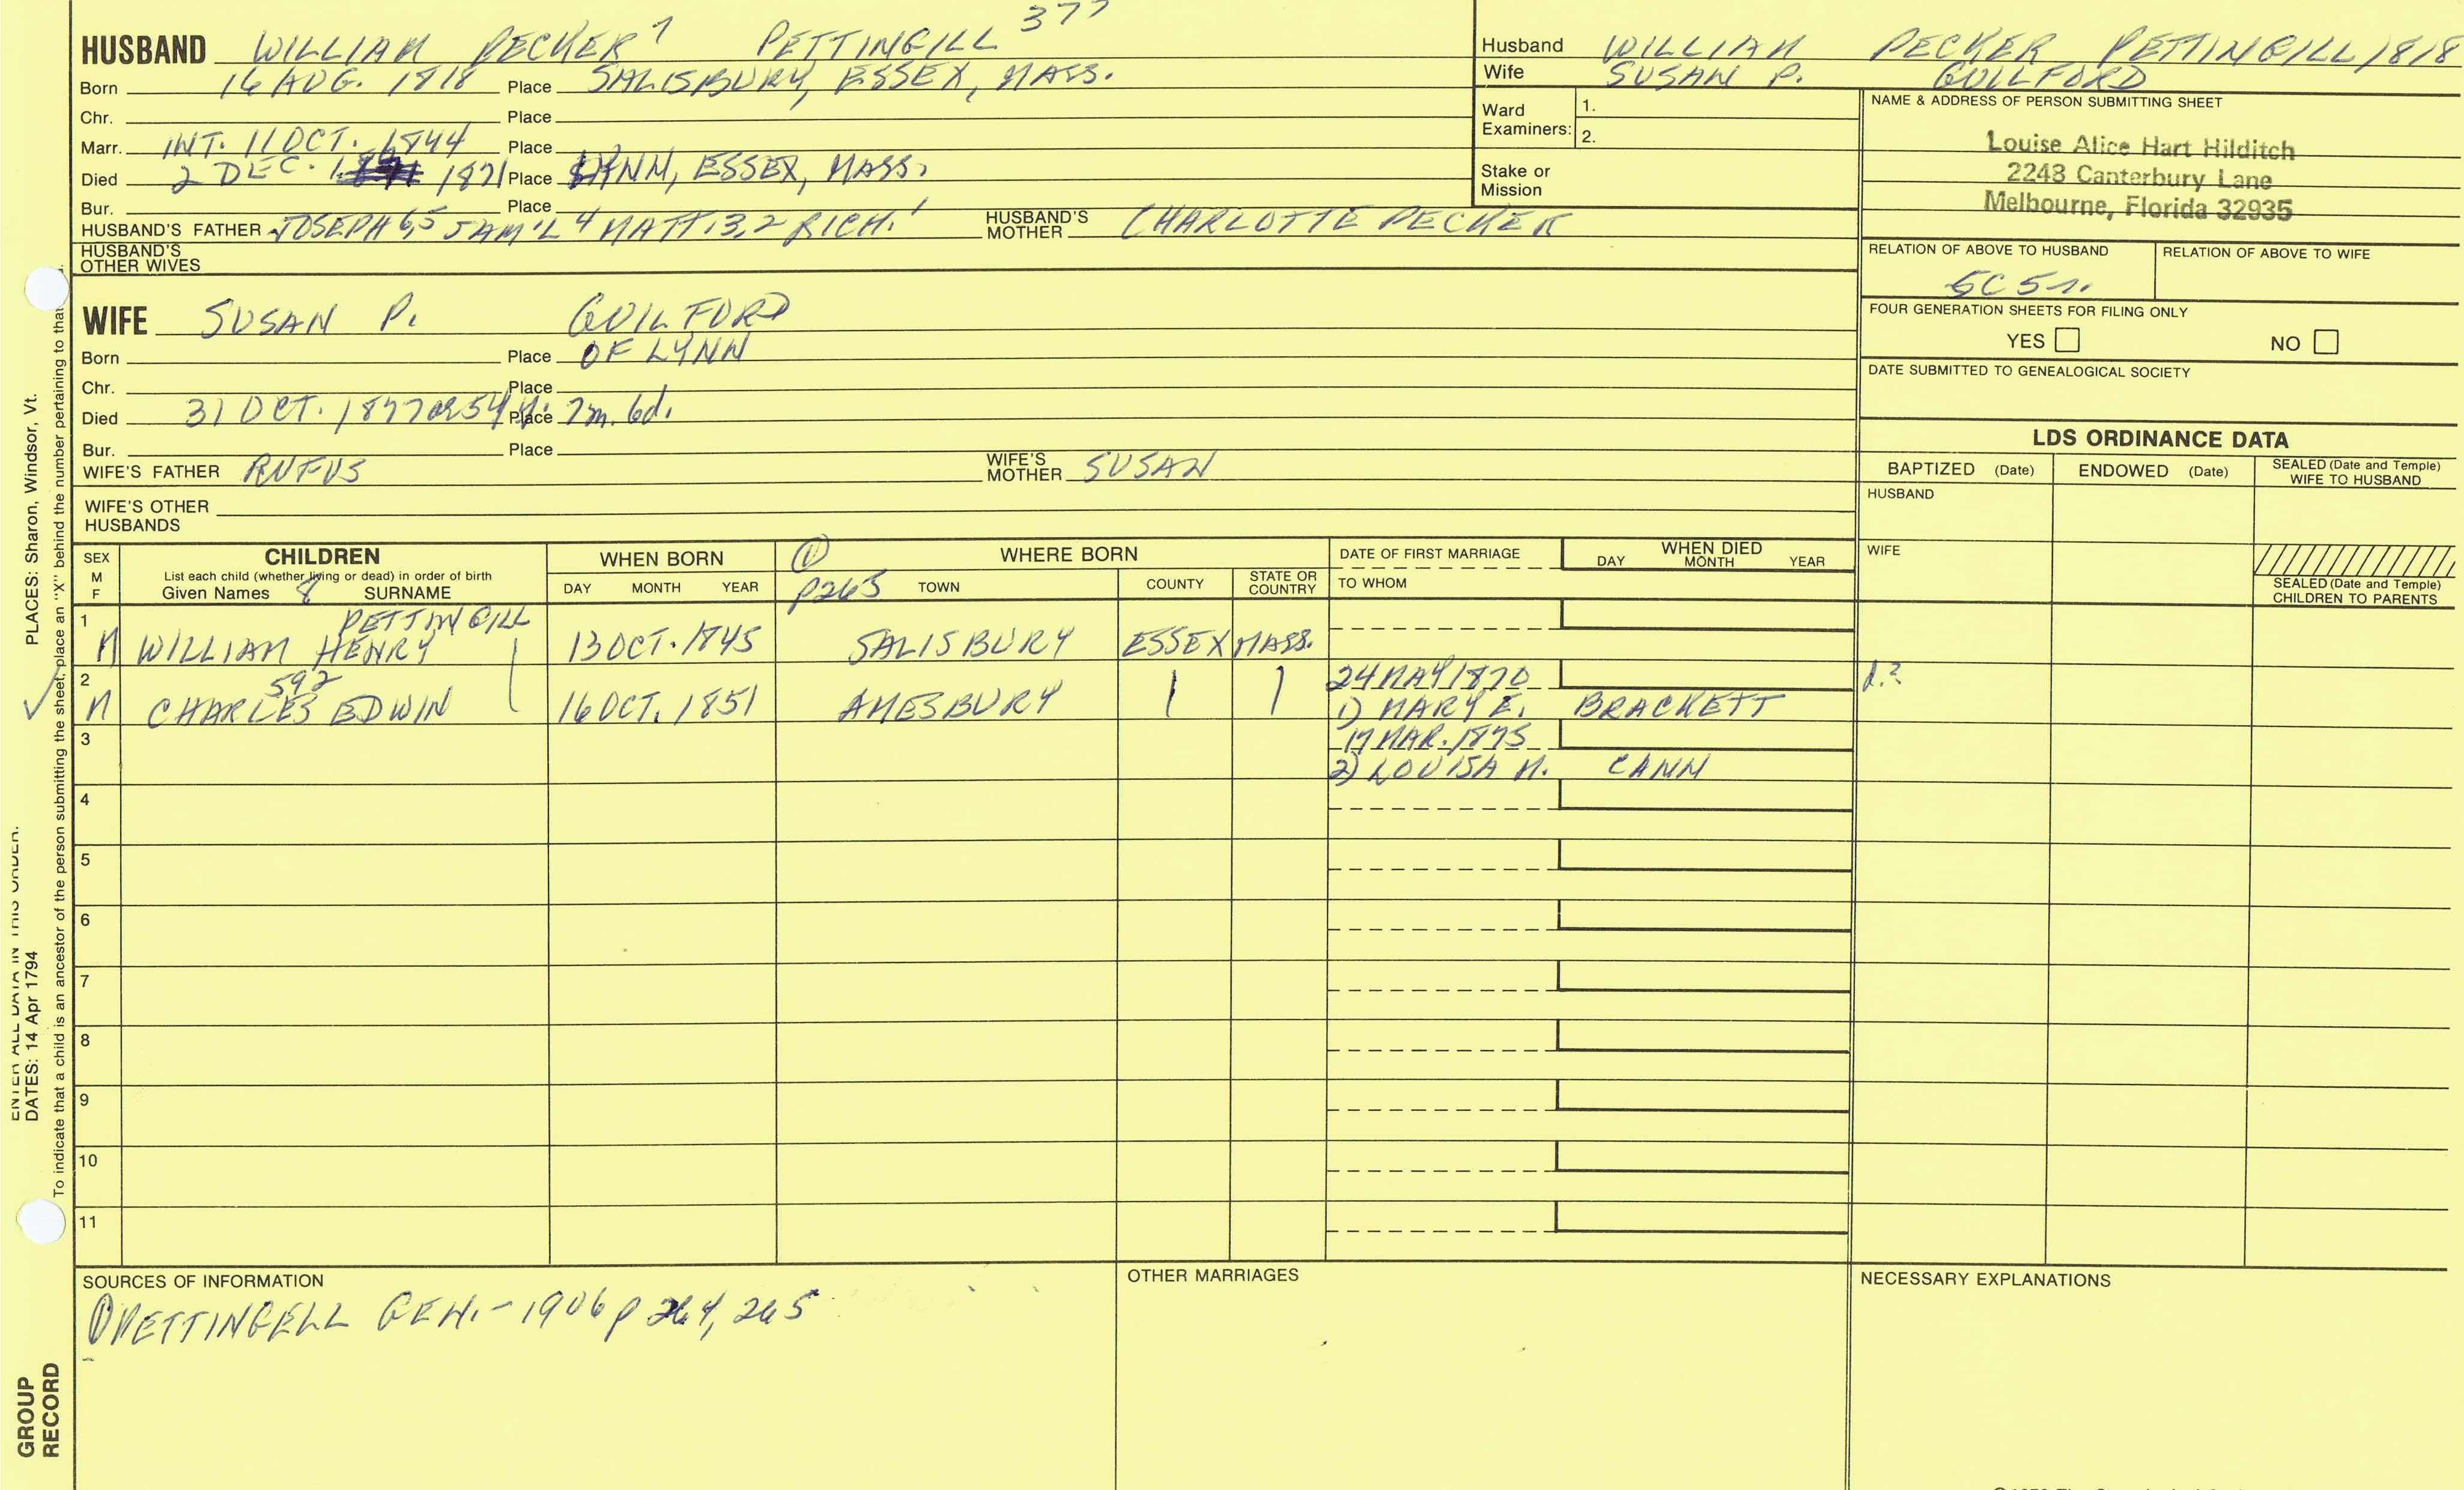 HUSBAND WILLIAM PECKER 7 PETTINGILL 377
Born 16 AUG. 1818 Place SALISBURY, ESSEX, MASS.
Chr. Place
Marr. INT. 11 OCT. 1844 Place
Died 2 DEC. 1871 Place LYNN, ESSEX, MASS.
Bur. Place
HUSBAND'S FATHER JOSEPH 6,5 SAM'L 4 MATT. 3,2 RICH. 1 HUSBAND'S MOTHER CHARLOTTE PECKER
HUSBAND'S OTHER WIVES
WIFE SUSAN P. GUILFORD
Born Place OF LYNN
Chr. Place
Died 31 OCT. 1877 ae 54 y. Place 7m. 6d.
Bur. Place
WIFE'S FATHER RUFUS WIFE'S MOTHER SUSAN
WIFE'S OTHER HUSBANDS
Husband WILLIAM PECKER PETTINGILL 1818
Wife SUSAN P. GUILFORD
Ward Examiners: 1.
2.
Stake or Mission
NAME & ADDRESS OF PERSON SUBMITTING SHEET
Louise Alice Hart Hilditch
2243 Canterbury Lane
Melbourne, Florida 32935
RELATION OF ABOVE TO HUSBAND RELATION OF ABOVE TO WIFE
FOUR GENERATION SHEETS FOR FILING ONLY
YES NO
DATE SUBMITTED TO GENEALOGICAL SOCIETY
LDS ORDINANCE DATA
BAPTIZED (Date) ENDOWED (Date) SEALED (Date and Temple) WIFE TO HUSBAND
HUSBAND
WIFE
SEALED (Date and Temple) CHILDREN TO PARENTS
SEX M F
CHILDREN
List each child (whether living or dead) in order of birth
Given Names 8 SURNAME
WHEN BORN
DAY MONTH YEAR
① p265
WHERE BORN
TOWN COUNTY STATE OR COUNTRY
DATE OF FIRST MARRIAGE
TO WHOM
WHEN DIED
DAY MONTH YEAR
1 PETTINGILL
M WILLIAM HENRY 13 OCT. 1845 SALISBURY ESSEX MASS.
2 592 24 MAY 1870 d.?
M CHARLES EDWIN 16 OCT. 1851 AMESBURY 1) MARY E. BRACKETT
3 17 MAR. 1875
2) LOUISA M. CANN
4
5
6
7
8
9
10
11
SOURCES OF INFORMATION
① PETTINGELL GEN. - 1906 p 264, 265
OTHER MARRIAGES
NECESSARY EXPLANATIONS
PLACES: Sharon, Windsor, Vt.
To indicate that a child is an ancestor of the person submitting the sheet, place an "X" behind the number pertaining to that
ENTER ALL DATA IN THIS ORDER:
DATES: 14 Apr 1794
GROUP
RECORD